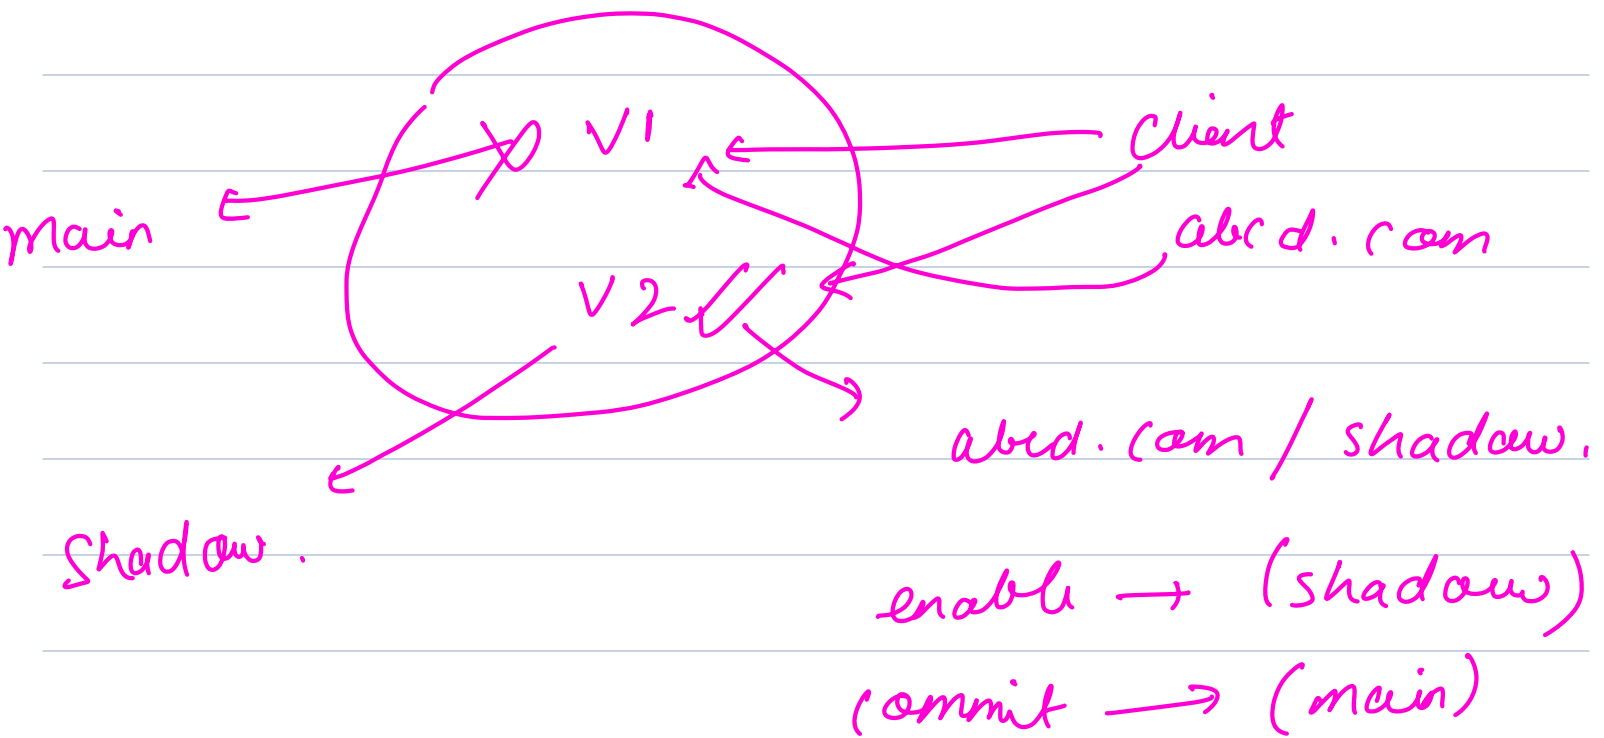 V1
client
main
abcd.com
V2
abcd.com / shadow.
shadow.
enable → (shadow)
commit → (main)